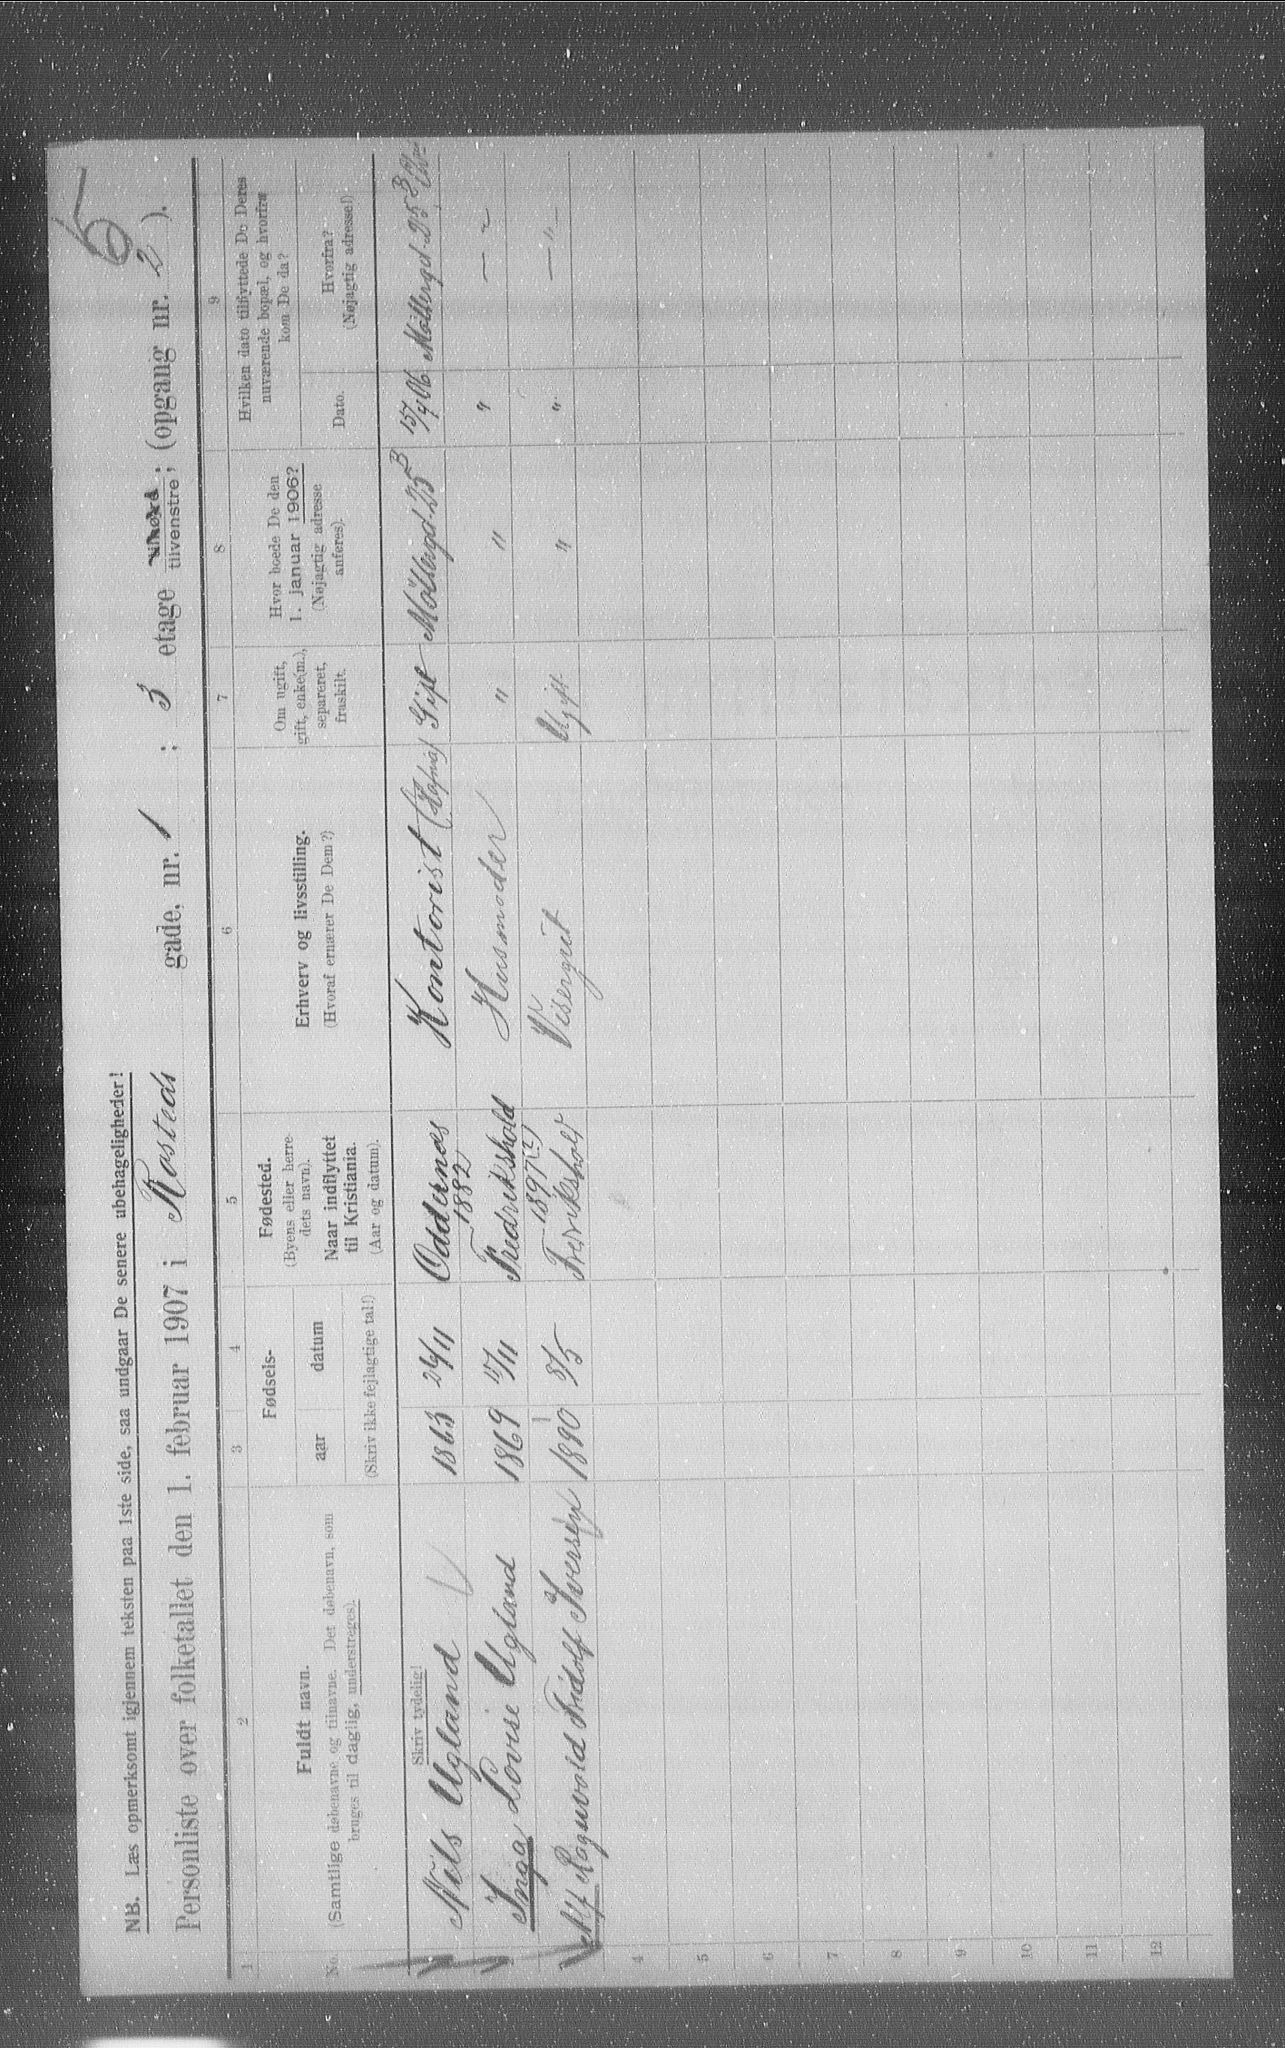 6
NB. Læs opmerksomt igjennem teksten paa 1ste side, saa undgaar De senere ubehageligheder!
Personliste over folketallet den 1. februar 1907 i Rosteds gade, nr. 1 ; 3 etage tilhøire tilvenstre ; (opgang nr. 2 ).
1 2 3 4 5 6 7 8 9
No.
Fuldt navn.
(Samtlige døbenavne og tilnavne. Det døbenavn, som
bruges til daglig, understreges).
Fødsels-
aar datum
(Skriv ikke fejlagtige tal!)
Fødested.
(Byens eller herre-
dets navn).
Naar indflyttet
til Kristiania.
(Aar og datum).
Erhverv og livsstilling.
(Hvoraf ernærer De Dem?)
Om ugift,
gift, enke(m.),
separeret,
fraskilt.
Hvor boede De den
1. januar 1906?
(Nøjagtig adresse
anføres).
Hvilken dato tilflyttede De Deres
nuværende bopæl, og hvorfra
kom De da?
Dato.
Hvorfra?
(Nøjagtig adresse!)
Skriv tydelig!
Nils Ugland 1863 26/11 Oddernes 1882 Kontorist Gift Møllergd. 25 B 15/4 06 Møllergd. 25 B
Inga Lovise Ugland 1869 15/11 Fredrikshold 1897 Husmoder " " " — " —
Alf Ragnvald Fridolf Iversen 1890 8/5 Fredrikshald Visergut Ugift " " — " —
4
5
6
7
8
9
10
11
12